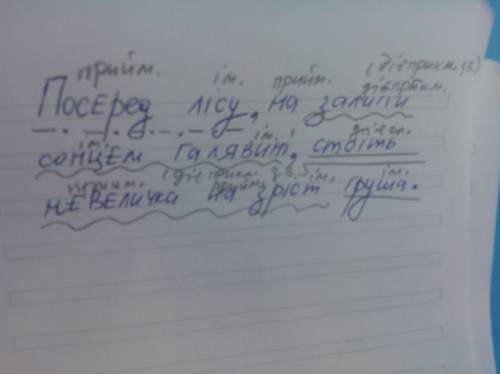 прийм. ім. прийм. (дієприкм. зв.)
дієприкм.
Посеред лісу, на залитій
ім. ім. дієсл.
сонцем галявині, стоїть
прикм. (дієприкм. зв.) прийм. ім. ім.
невеличка на зріст груша.